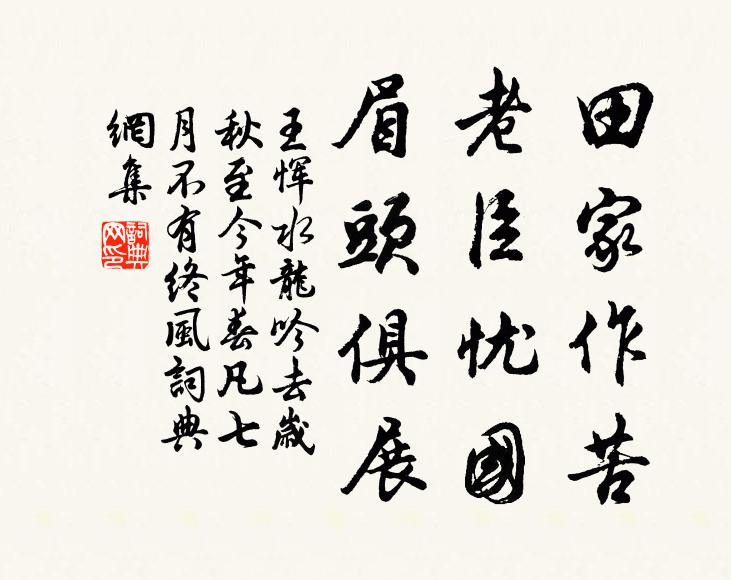 田家作苦
老臣忧國
眉頭俱展
王恽水龍吟去歲
秋至今年春凡七
月不有终風詞典
網集
詞典
网印